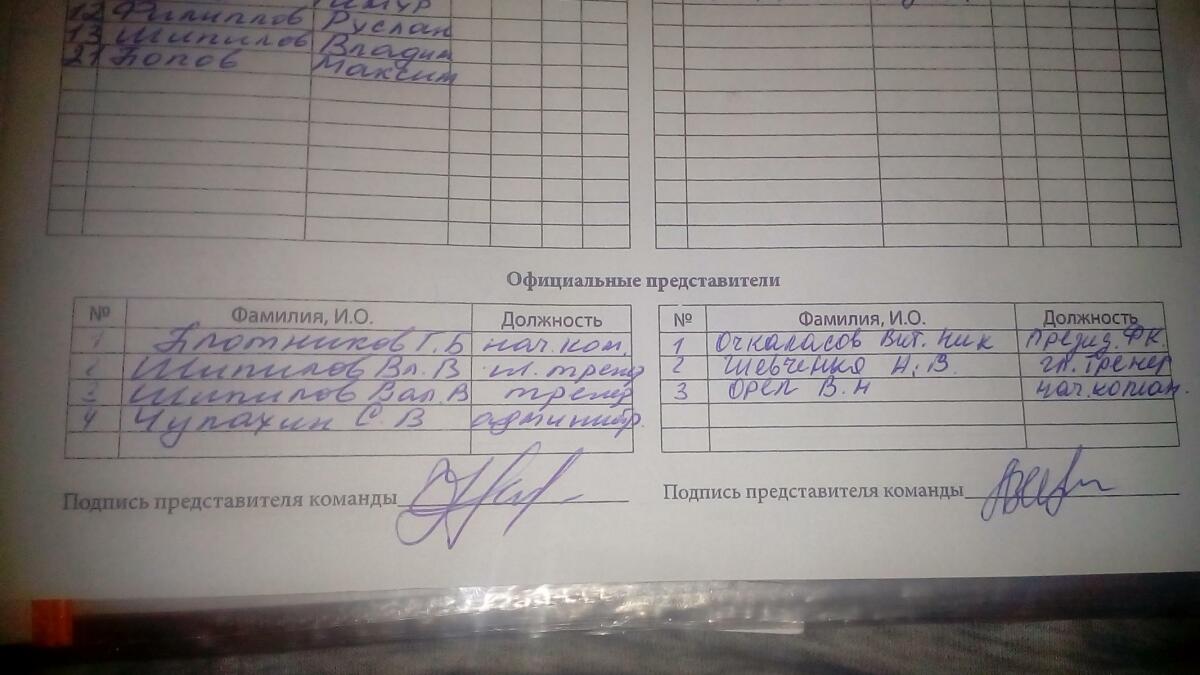 12 Филиппов Руслан
13 Шипилов Владим
21 Попов Максим
Официальные представители
№ Фамилия, И.О. Должность
1 Плотников Г.Б нач.ком.
2 Шипилов Вл.В гл. тренер
3 Шипилов Вал.В тренер
4 Чупахин С.В администр.
№ Фамилия, И.О. Должность
1 Вит. Ник Презид. ФК.
2 Шевченко Н.В. гл. тренер
3 Орел В.Н нач.коман.
Подпись представителя команды
Подпись представителя команды